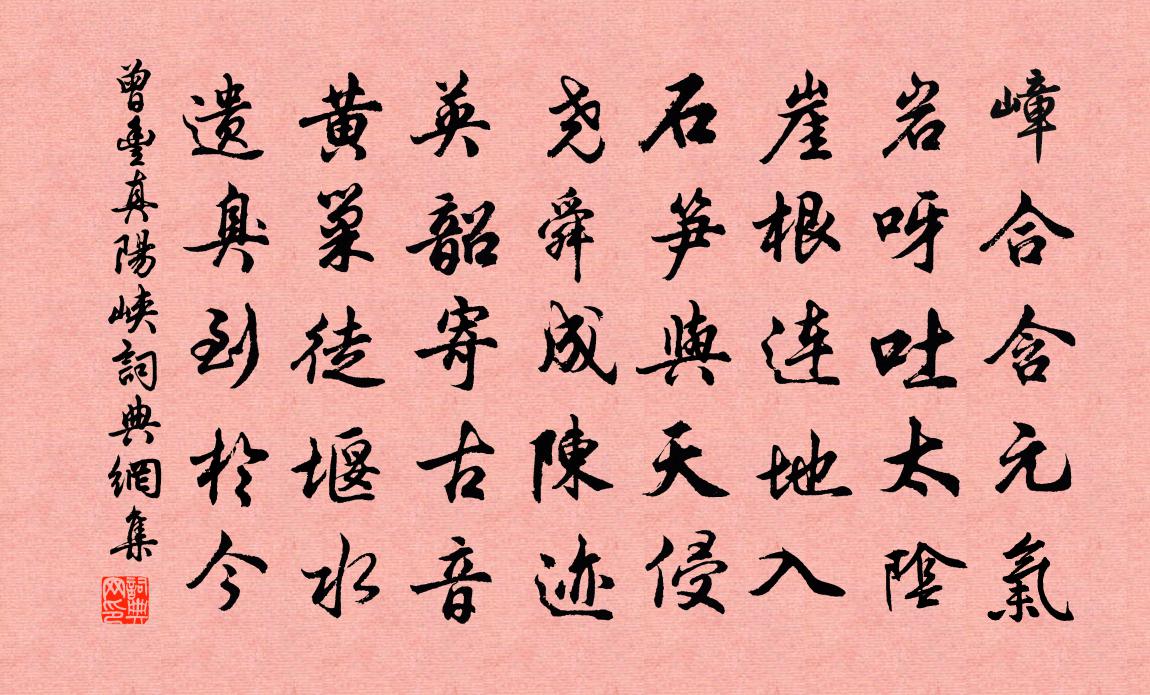 嶂合含元氣
岩呀吐太陰
崖根连地入
石笋與天侵
尧舜成陳迹
英韶寄古音
黄巢徒堰水
遗臭到於今
曾豊真陽峽詞典網集
詞典
网印